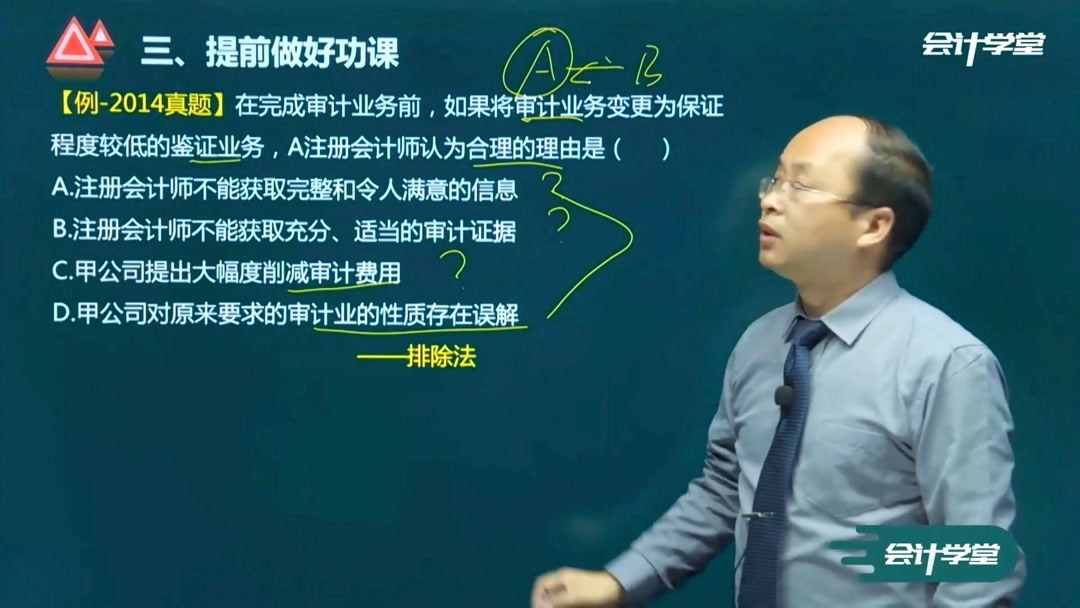 三、提前做好功课
会计学堂
A ← B
【例-2014真题】在完成审计业务前，如果将审计业务变更为保证
程度较低的鉴证业务，A注册会计师认为合理的理由是（　　）
A.注册会计师不能获取完整和令人满意的信息 ?
B.注册会计师不能获取充分、适当的审计证据 ?
C.甲公司提出大幅度削减审计费用 ?
D.甲公司对原来要求的审计业的性质存在误解
——排除法
会计学堂